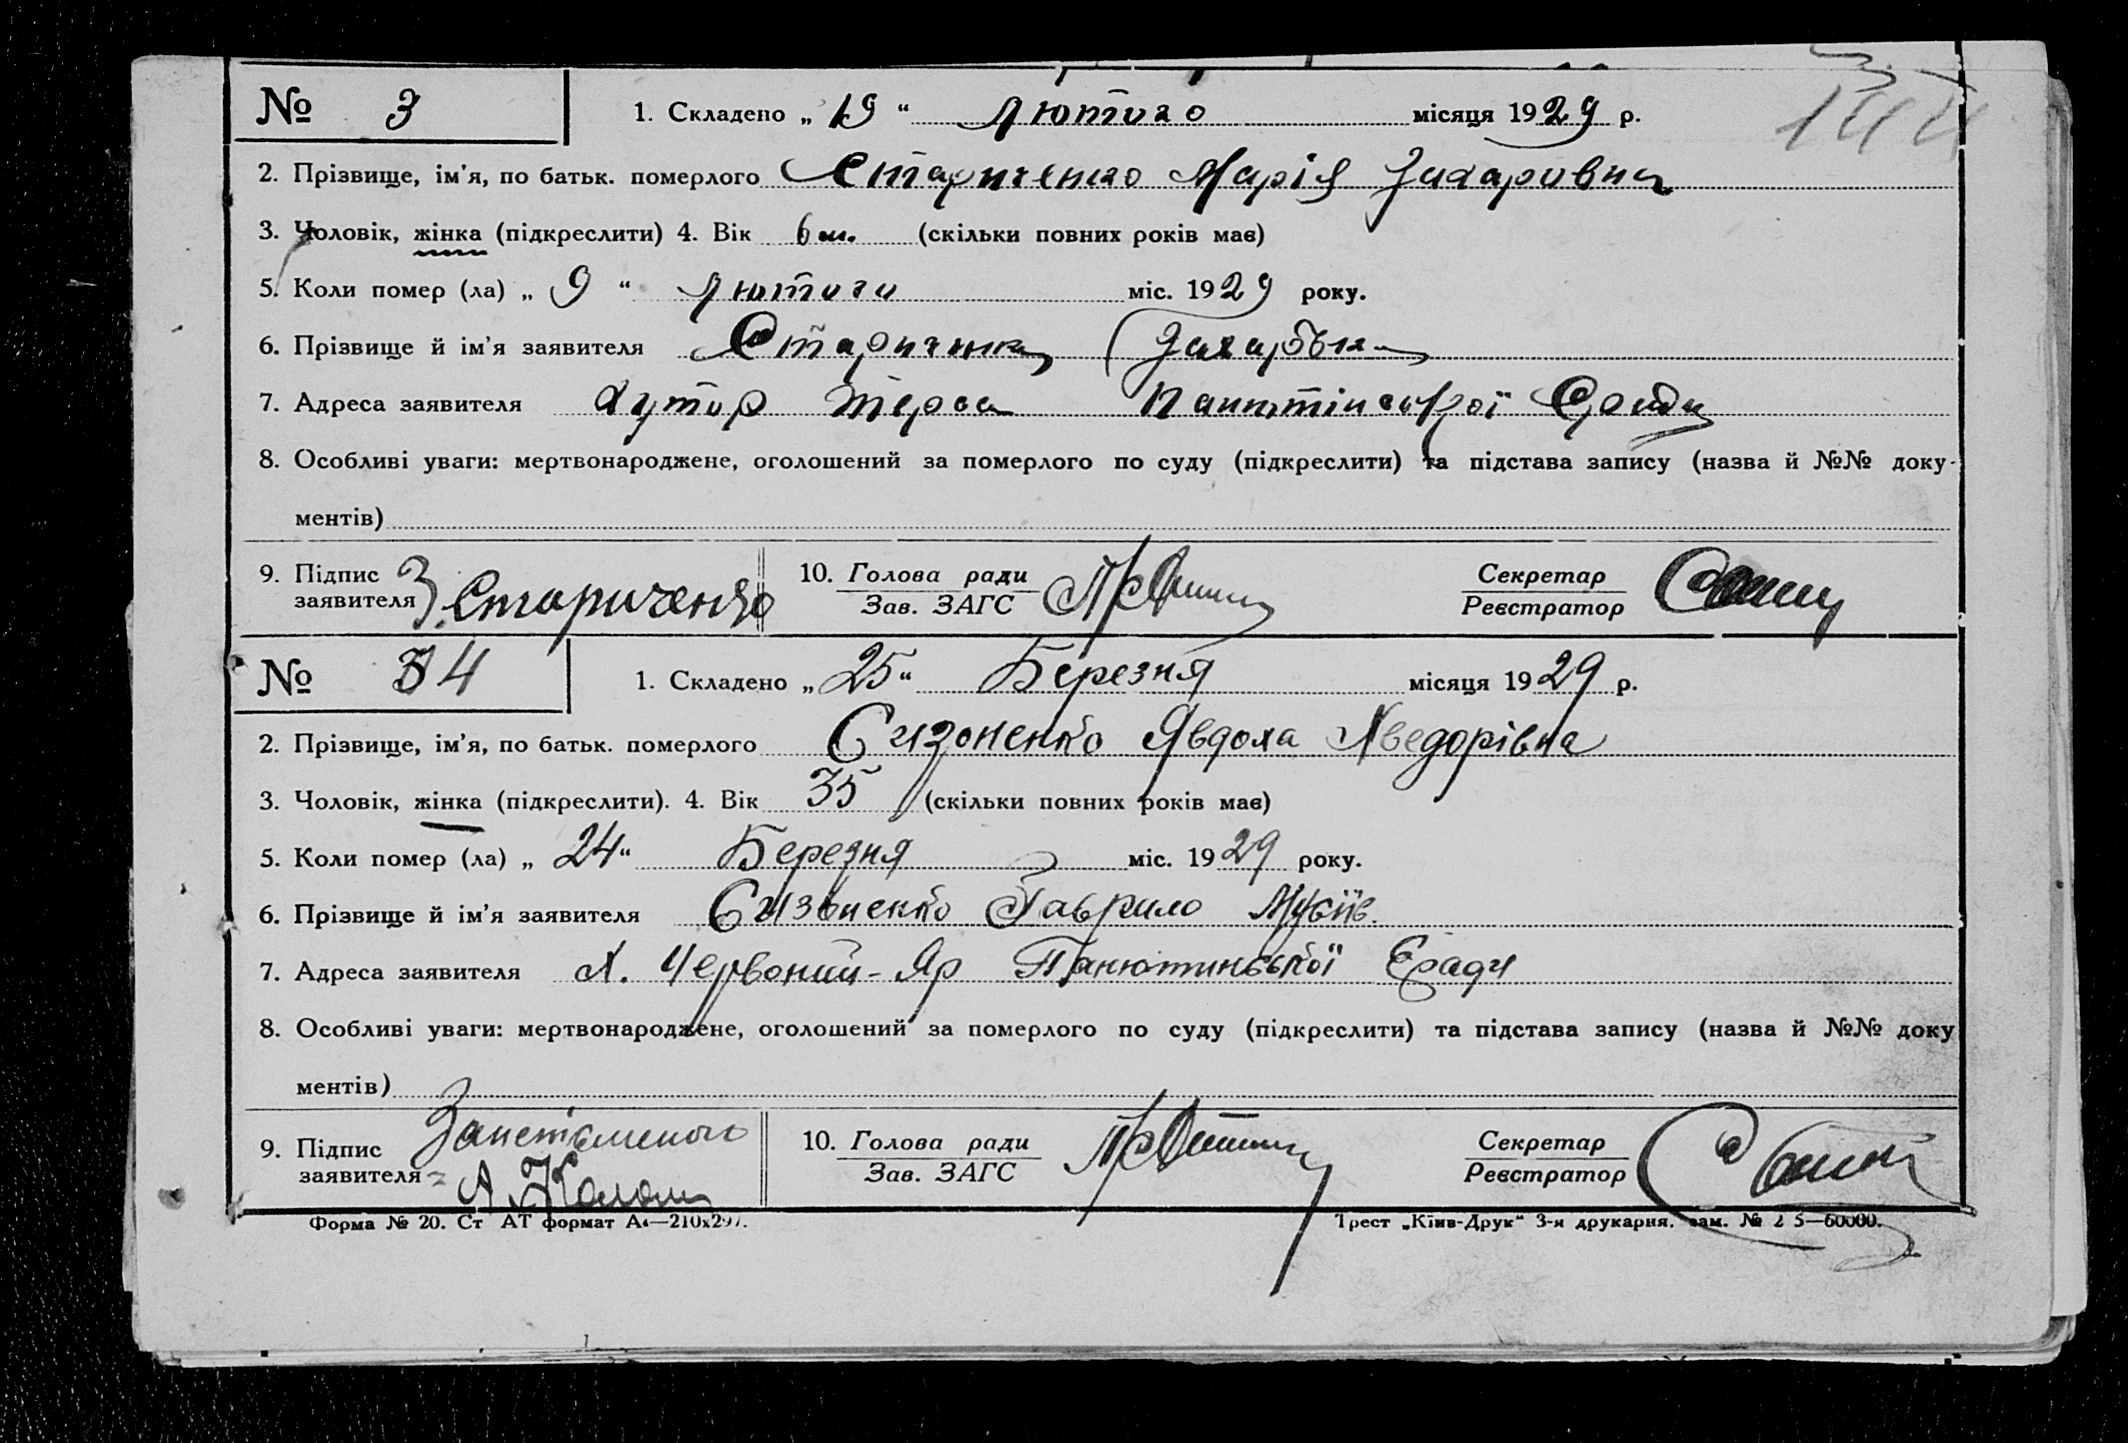 144
№ 3 1. Складено „ 19 “ Лютого місяця 1929 р.
2. Прізвище, ім'я, по батьк. померлого Стариченко Марія Захаровна
3. Чоловік, жінка (підкреслити) 4. Вік 6 м. (скільки повних років має)
5. Коли помер (ла) „ 9 “ Лютого міс. 1929 року.
6. Прізвище й ім'я заявителя Стариченко
7. Адреса заявителя Хутор Терса
8. Особливі уваги: мертвонароджене, оголошений за померлого по суду (підкреслити) та підстава запису (назва й №№ доку-
ментів)
9. Підпис заявителя З. Стариченко 10. Голова ради Зав. ЗАГС Секретар Реєстратор
№ 4 1. Складено „ 25 “ Березня місяця 1929 р.
2. Прізвище, ім'я, по батьк. померлого Сизоненко Явдоха Хведорівна
3. Чоловік, жінка (підкреслити). 4. Вік 35 (скільки повних років має)
5. Коли помер (ла) „ 24 “ Березня міс. 1929 року.
6. Прізвище й ім'я заявителя Сизоненко Гаврило Мусіїв.
7. Адреса заявителя Х. Червоний-Яр Панютинської С/ради
8. Особливі уваги: мертвонароджене, оголошений за померлого по суду (підкреслити) та підстава запису (назва й №№ доку
ментів)
9. Підпис заявителя 10. Голова ради Зав. ЗАГС Секретар Реєстратор
Форма № 20. Ст АТ формат А4—210х297. Трест „Київ-Друк“ 3-я друкарня. зам. №